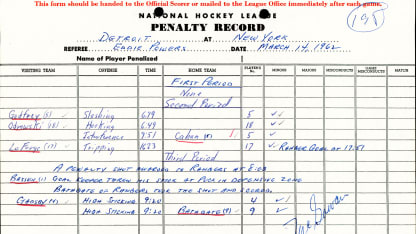 This form should be handed to the Official Scorer or mailed to the League Office immediately after each game.
NATIONAL HOCKEY LEAGUE
PENALTY RECORD
DETROIT AT NEW YORK
REFEREE EDDIE POWERS DATE MARCH 14, 1962
Name of Player Penalized
VISITING TEAM OFFENSE TIME HOME TEAM PLAYING NO. MINORS MAJORS MISCONDUCTS GAME MISCONDUCTS MATCH
First Period
None
Second Period
Godfrey (5) Slashing 5 ✓
Odrowski (18) Hooking 6:49 18 ✓
Interference 9:51 Cahan (5) 5 ✓
Tripping 17 ✓ RANGER GOAL AT 17:51
Third Period
A PENALTY SHOT AWARDED TO RANGERS AT
BASSEN (1) GOAL KEEPER THROWN HIS STICK AT PUCK IN DEFENDING ZONE
BATHGATE OF RANGERS TOOK THE SHOT AND SCORED.
GADSBY (4) HIGH STICKING 9:20 4 ✓
HIGH STICKING 9:20 BATHGATE (9) 9 ✓